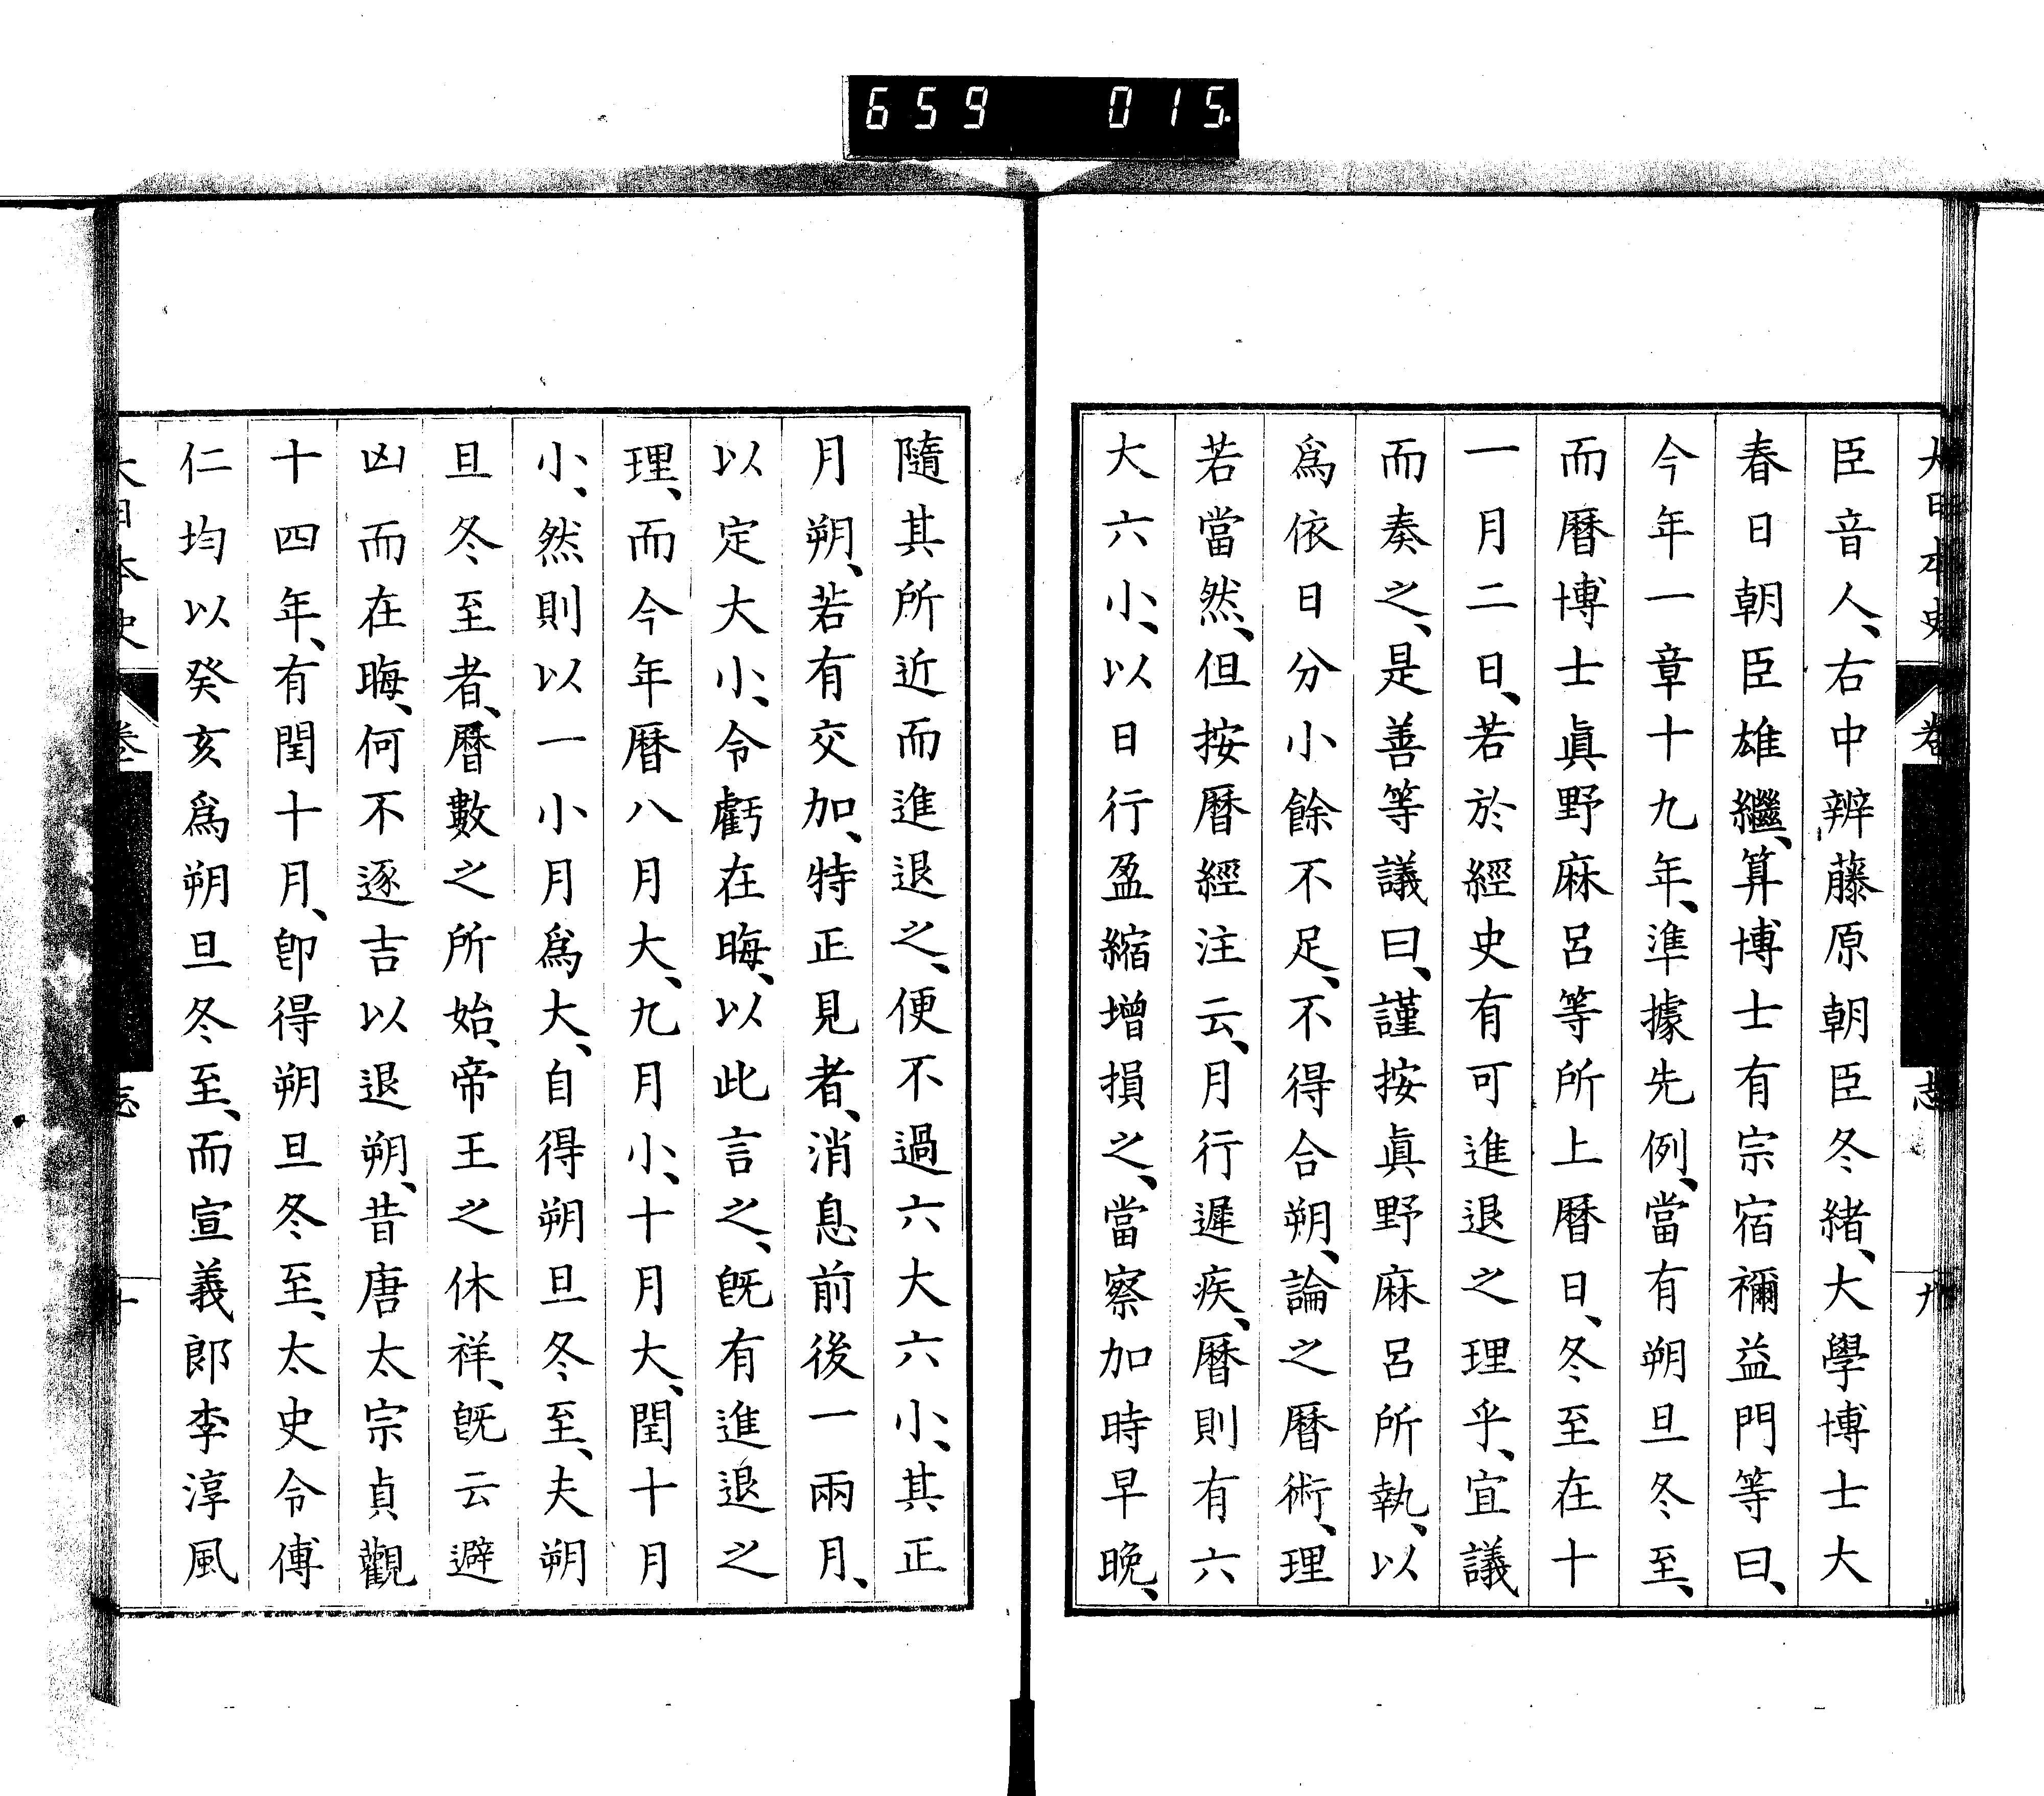 659 015
大日本史 卷 志 九
臣音人、右中辨藤原朝臣冬緒、大學博士大
春日朝臣雄繼、算博士有宗宿禰益門等曰、
今年一章十九年、準據先例、當有朔旦冬至、
而曆博士眞野麻呂等所上曆日、冬至在十
一月二日、若於經史有可進退之理乎、宜議
而奏之、是善等議曰、謹按眞野麻呂所執、以
爲依日分小餘不足、不得合朔、論之曆術、理
若當然、但按曆經注云、月行遲疾、曆則有六
大六小、以日行盈縮增損之、當察加時早晚、
隨其所近而進退之、便不過六大六小、其正
月朔、若有交加、特正見者、消息前後一兩月、
以定大小、令虧在晦、以此言之、旣有進退之
理、而今年曆八月大、九月小、十月大、閏十月
小、然則以一小月爲大、自得朔旦冬至、夫朔
旦冬至者、曆數之所始、帝王之休祥、旣云避
凶而在晦、何不逐吉以退朔、昔唐太宗貞觀
十四年、有閏十月、卽得朔旦冬至、太史令傅
仁均以癸亥爲朔旦冬至、而宣義郎李淳風
大日本史 卷 志 十